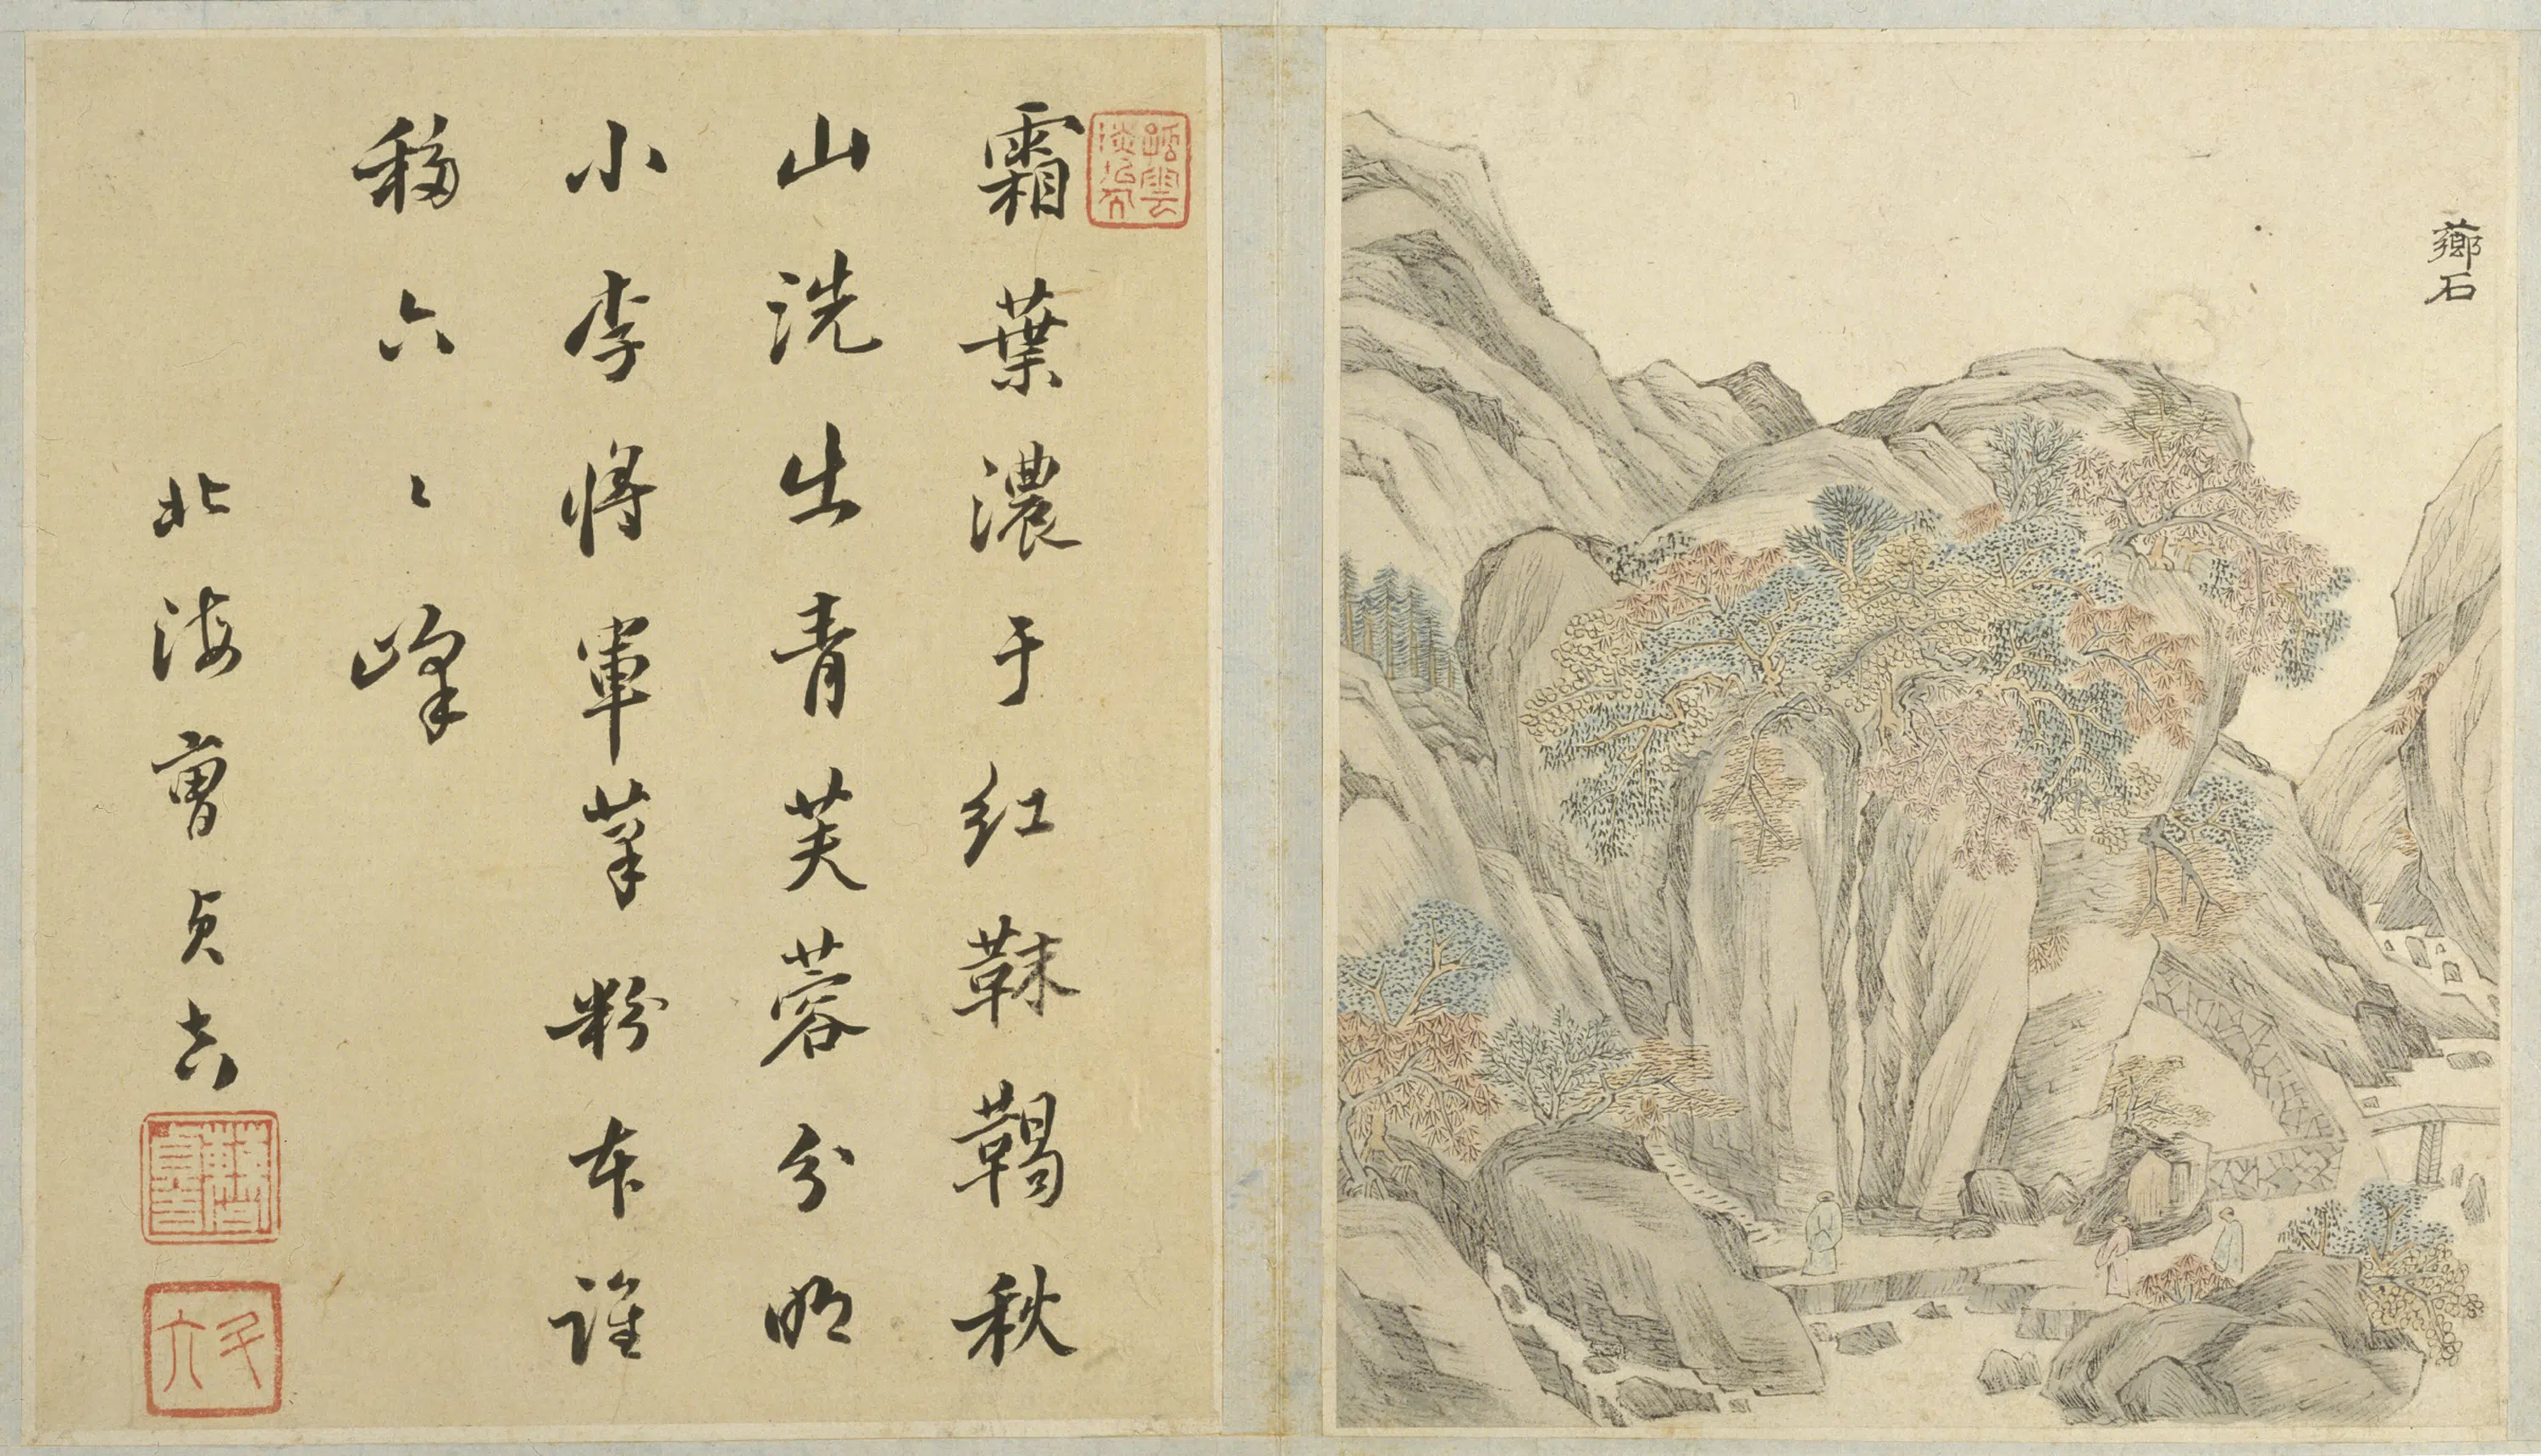 薌石
霜葉濃于紅靺鞨秋
山洗出青芙蓉分明
小李將軍筆粉本誰
移六〻峰
北海曹貞吉